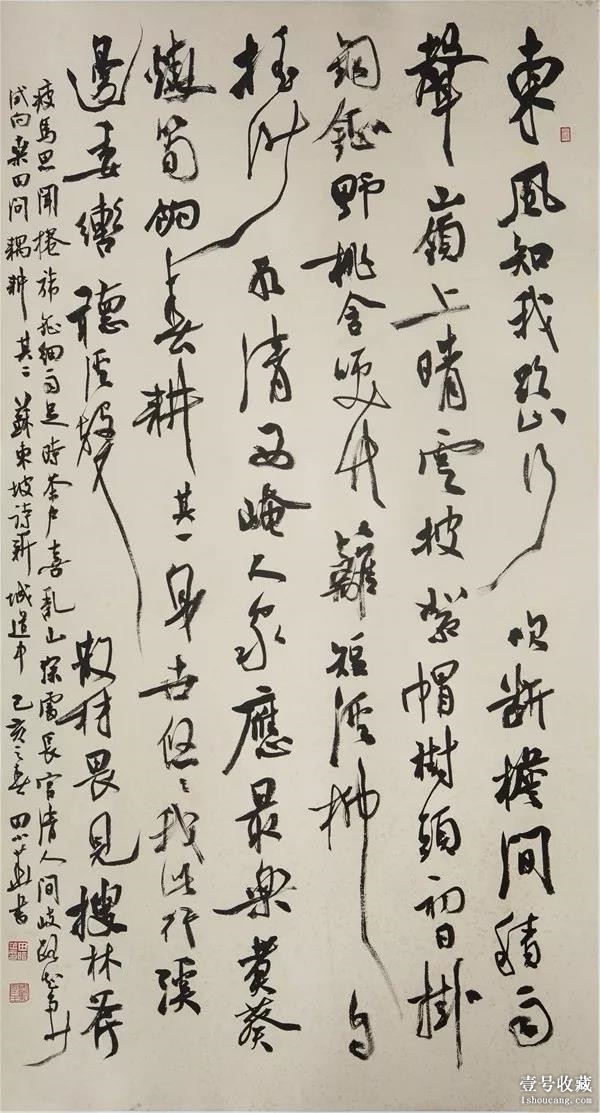 東風知我欲山行吹斷檐間積雨
聲嶺上晴雲披絮帽樹頭初日掛
銅鉦野桃含笑竹籬短溪柳自
搖沙水清西崦人家應最楽煮葵
燒筍餉春耕其一身世悠〻我此行溪
邊委轡聽溪聲散材畏見搜林斧
疲馬思聞捲旆鉦細雨足時茶户喜亂山深處長官清人間岐路知多少
試向桑田問耦耕其二蘇東坡詩新城道中己亥之春田小華書
壹号收藏
1shoucang.com